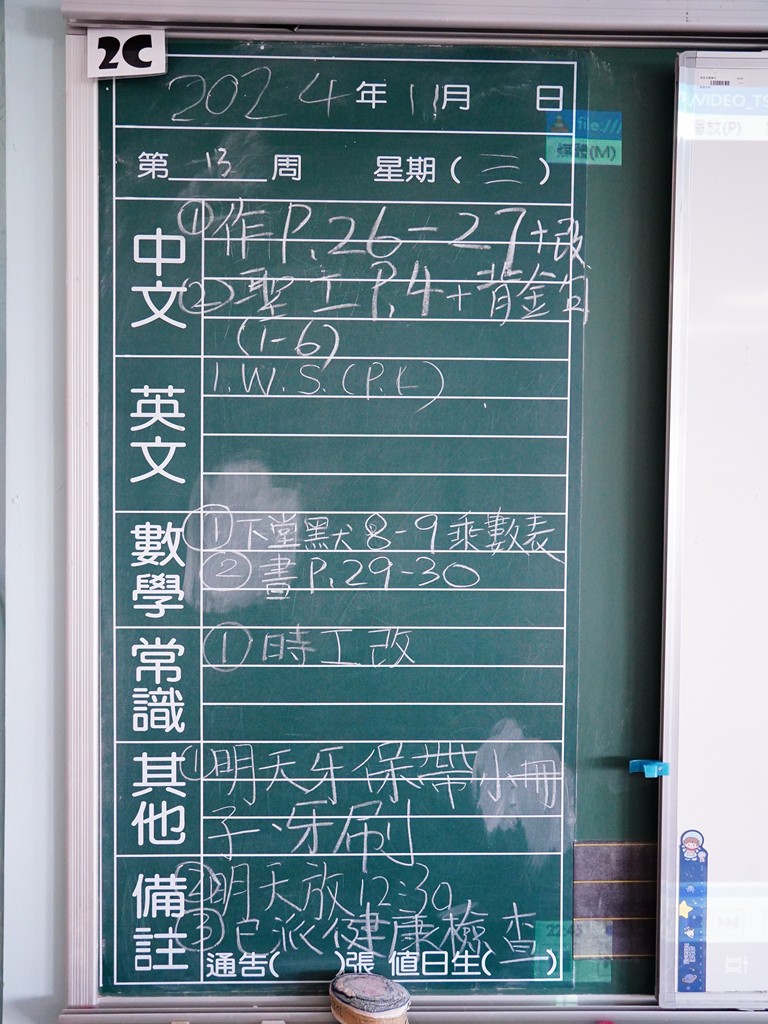 2C
2024年11月 日
第 13 周 星期(三)
中文
①作P.26-27+改
②聖工P.4+背金句
(1-6)
英文
1.W.S.(P.K)
數學
①下堂默8-9乘數表
②書P.29-30
常識
①時工改
其他
①明天牙保帶小冊
子、牙刷
備註
②明天放12:30
③已派健康檢查
通告( )張 值日生( )
VIDEO_TS
file:///
媒體(M)
播放(P)